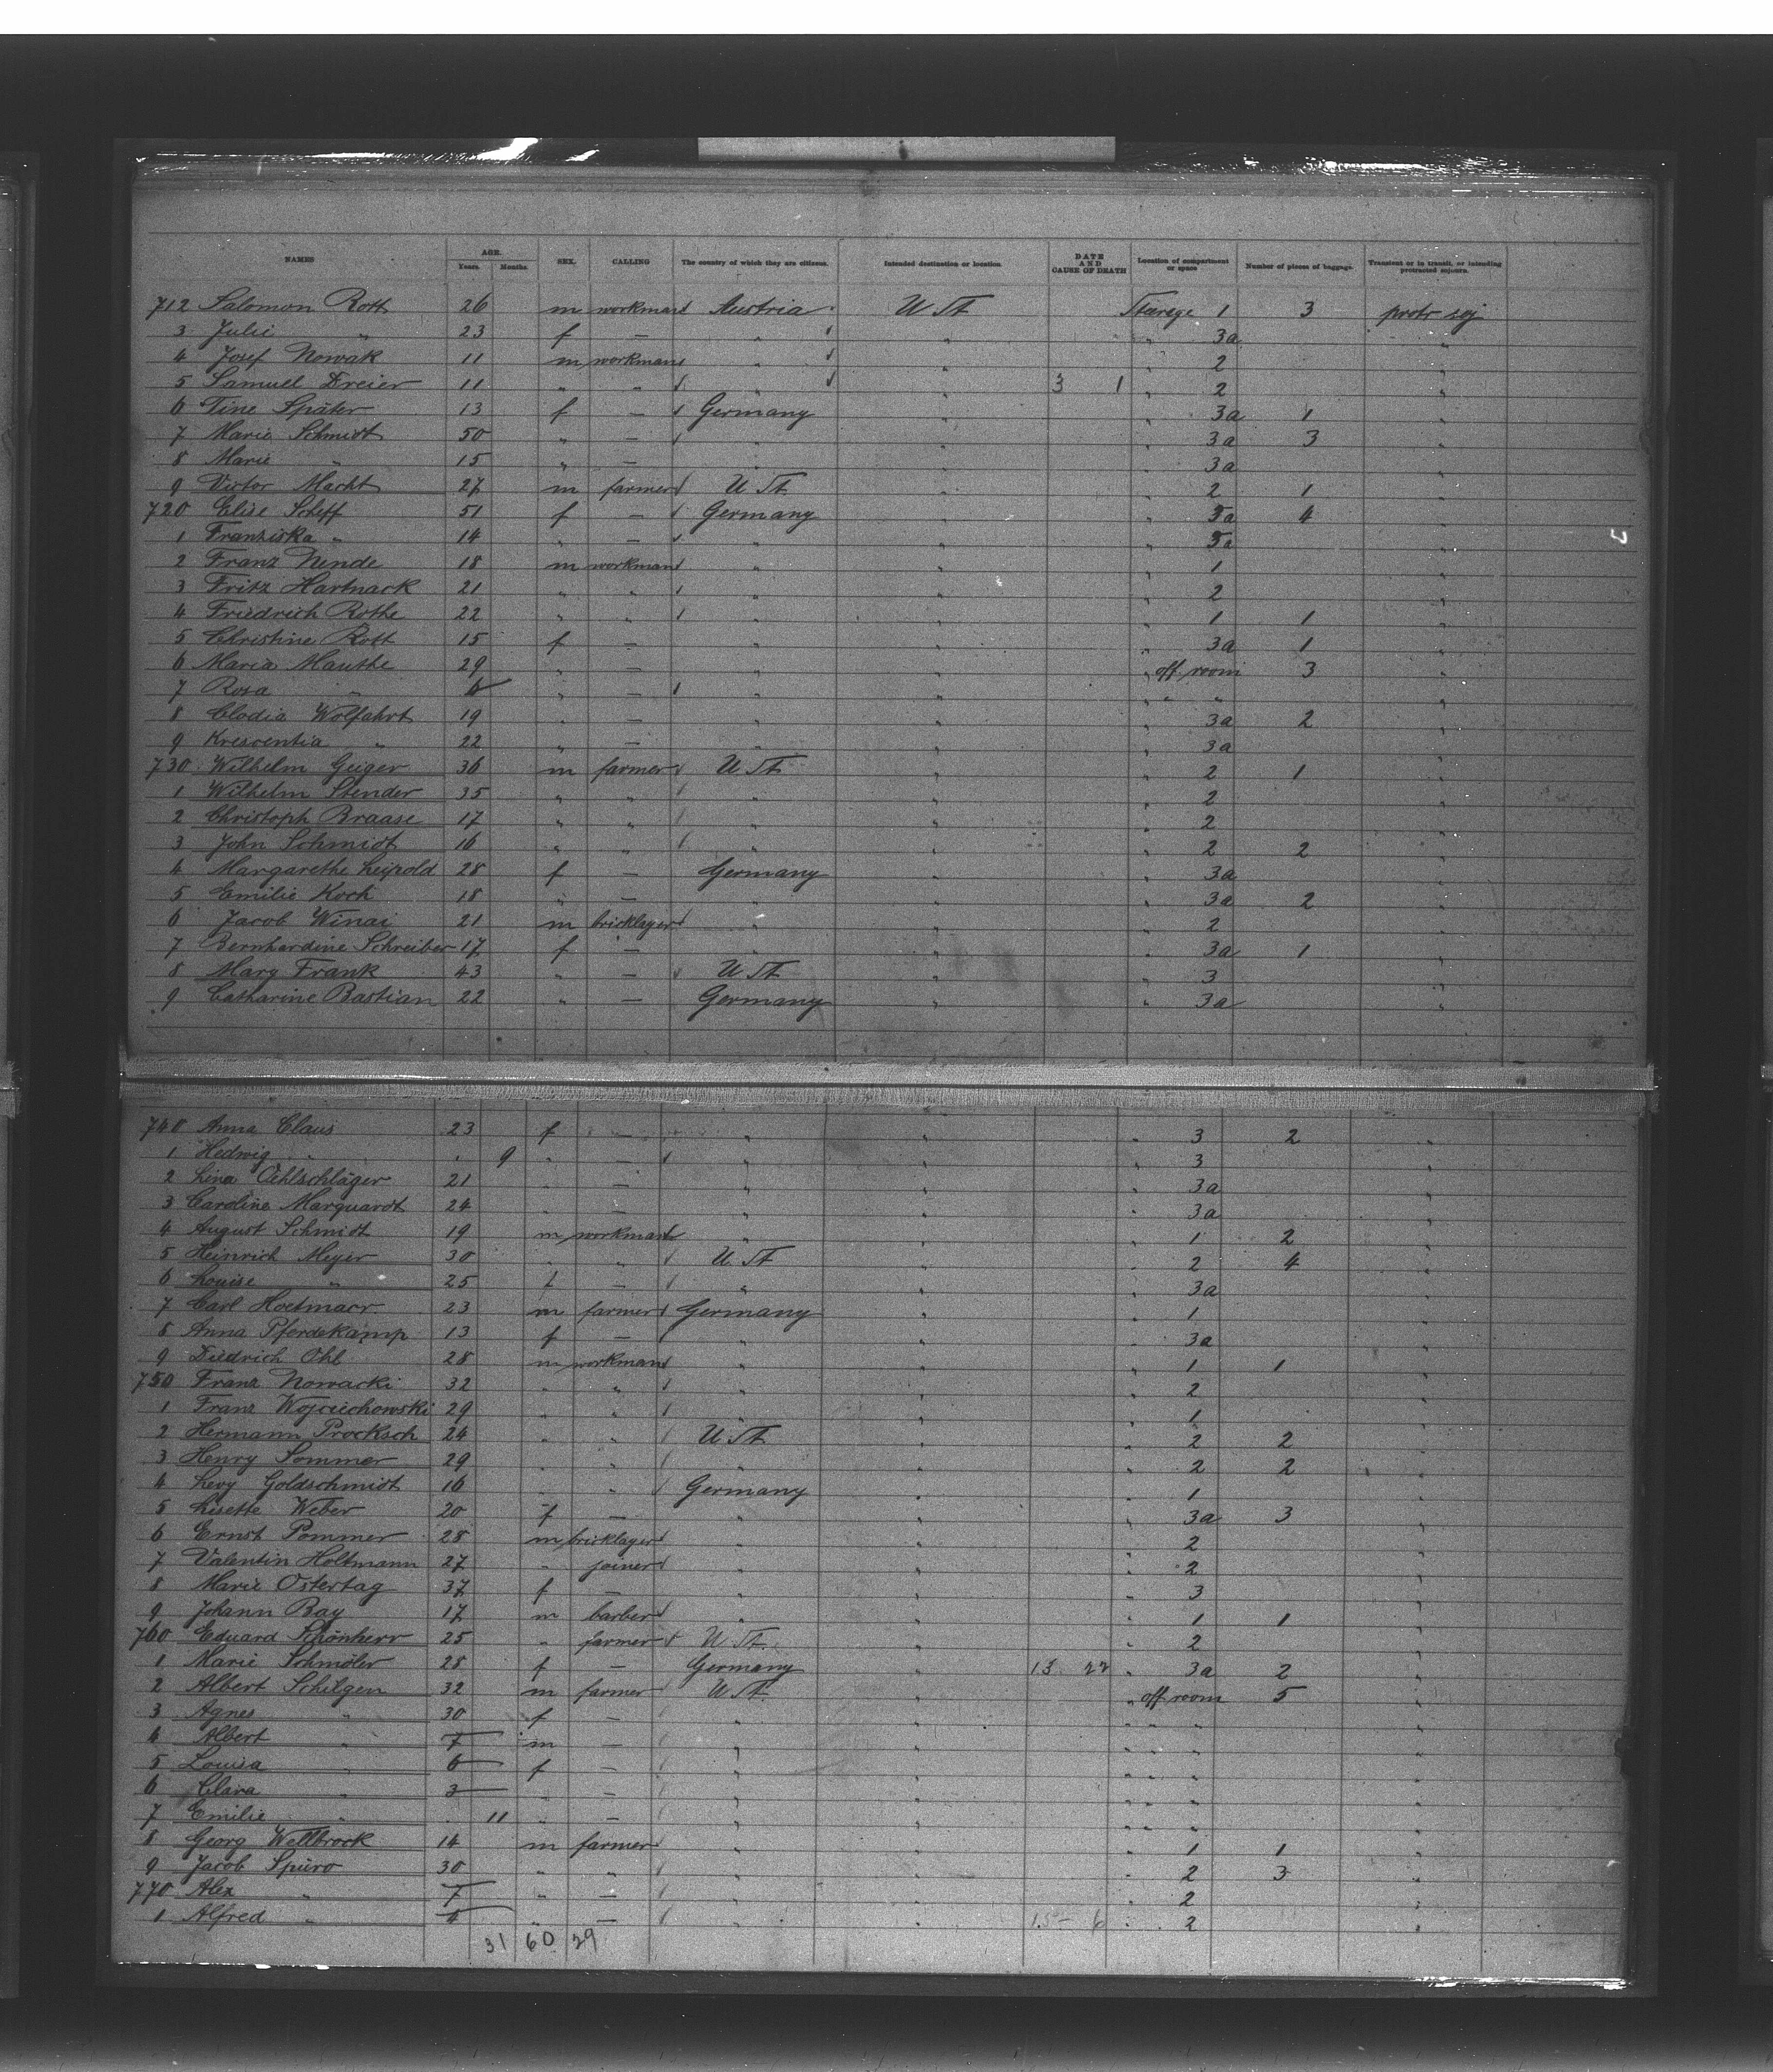 NAMES AGE. Years. Months. SEX. CALLING The country of which they are citizens. Intended destination or location. DATE AND CAUSE OF DEATH Location of compartment or space Number of pieces of baggage. Transient or in transit, or intending protracted sojourn.
712 Salomon Rott 26 m workman Austria U St Steerage 1 3 protr soj
3 Julie " 23 f — " " " 3a "
4 Josef Nowak 11 m workman " " " 2 "
5 Samuel Dreier 11 " " " " 3 1 " 2 "
6 Tine Später 13 f — Germany " " 3a 1 "
7 Marie Schmidt 50 " — " " " 3a 3 "
8 Marie " 15 " — " " " 3a "
9 Victor Macht 27 m farmer U St " " 2 1 "
720 Elise Scheff 51 f — Germany " " 3a 4 "
1 Franziska " 14 " — " " " 3a "
2 Franz Nende 18 m workman " " " 1 "
3 Fritz Hartnack 21 " " " " " 2 "
4 Friedrich Rothe 22 " " " " " 1 1 "
5 Christine Rott 15 f — " " " 3a 1 "
6 Maria Mauthe 29 " — " " " off room 3 "
7 Rosa " 6 " — " " " " " "
8 Clodia Wolfahrt 19 " — " " " 3a 2 "
9 Krescentia " 22 " — " " " 3a "
730 Wilhelm Geiger 36 m farmer U St " " 2 1 "
1 Wilhelm Stender 35 " " " " " 2 "
2 Christoph Braase 17 " " " " " 2 "
3 John Schmidt 16 " " " " " 2 2 "
4 Margarethe Leypold 28 f — Germany " " 3a "
5 Emilie Koch 18 " — " " " 3a 2 "
6 Jacob Winai 21 m bricklayer " " " 2 "
7 Bernhardine Schreiber 17 f — " " " 3a 1 "
8 Mary Frank 43 " — U St " " 3 "
9 Catharine Bastian 22 " — Germany " " 3a "
740 Anna Claus 23 f — " " " 3 2 "
1 Hedwig " " 9 " — " " " 3 "
2 Lina Oehlschläger 21 " — " " " 3a "
3 Caroline Marquardt 24 " — " " " 3a "
4 August Schmidt 19 m workman " " " 1 2 "
5 Heinrich Meyer 30 " " U St " " 2 4 "
6 Louise " 25 f — " " " 3a "
7 Carl Hoetmacr 23 m farmer Germany " " 1 "
8 Anna Pferdekamp 13 f — " " " 3a "
9 Diedrich Ohl 28 m workman " " " 1 1 "
750 Franz Nowacki 32 " " " " " 2 "
1 Franz Wojciechowski 29 " " " " " 1 "
2 Hermann Procksch 24 " " U St " " 2 2 "
3 Henry Sommer 29 " " " " " 2 2 "
4 Levy Goldschmidt 16 " " Germany " " 1 "
5 Lisette Weber 20 f — " " " 3a 3 "
6 Ernst Pommer 28 m bricklayer " " " 2 "
7 Valentin Holtmann 27 " joiner " " " 2 "
8 Marie Ostertag 37 f — " " " 3 "
9 Johann Bay 17 m barber " " " 1 1 "
760 Eduard Schönherr 25 " farmer U St. " " 2 "
1 Marie Schmöler 28 f — Germany " 13 22 " 3a 2 "
2 Albert Schilgen 32 m farmer U St. " " off room 5 "
3 Agnes " 30 f — " " " " " "
4 Albert " 7 m — " " " " " "
5 Louisa " 6 f — " " " " " "
6 Clara " 3 " — " " " " " "
7 Emilie " 11 " — " " " " " "
8 Georg Wellbrock 14 m farmer " " " 1 1 "
9 Jacob Spiro 30 " " " " " 2 3 "
770 Alex " 7 " — " " " 2 "
1 Alfred " 4 " — " " 15 - 6 " 2 "
31 60 29